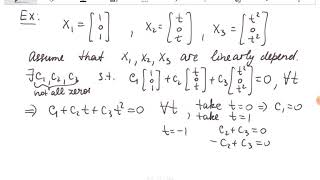 Ex: X₁ = [1 0 1], X₂ = [t 0 t], X₃ = [t² 0 t²]
Assume that X₁, X₂, X₃ are linearly depend.
∃ C₁, C₂, C₃ s.t. C₁ [1 0 1] + C₂ [t 0 t] + C₃ [t² 0 t²] = 0, ∀t
not all zeros
⇒ C₁ + C₂t + C₃t² = 0 ∀t, take t=0 ⇒ C₁ = 0
take t=1
t=-1 C₂ + C₃ = 0
-C₂ + C₃ = 0